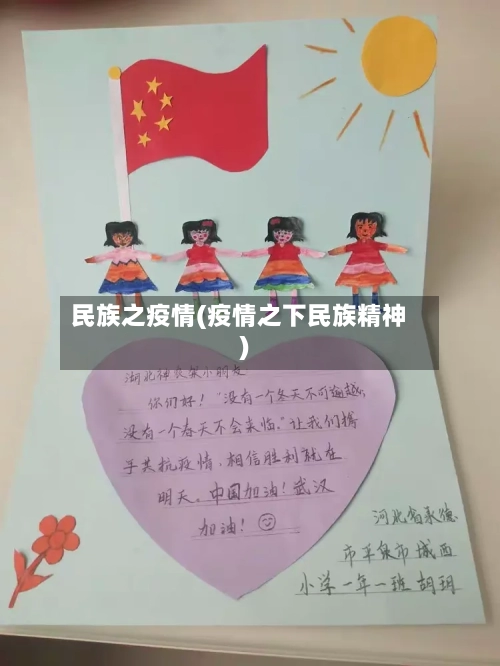 民族之疫情(疫情之下民族精神
)
湖北神农架小朋友
你们好！“没有一个冬天不可逾越，
没有一个春天不会来临。”让我们携
手共抗疫情，相信胜利就在
明天。中国加油！武汉
加油！
河北省承德
市平泉市城西
小学一年一班 胡玥